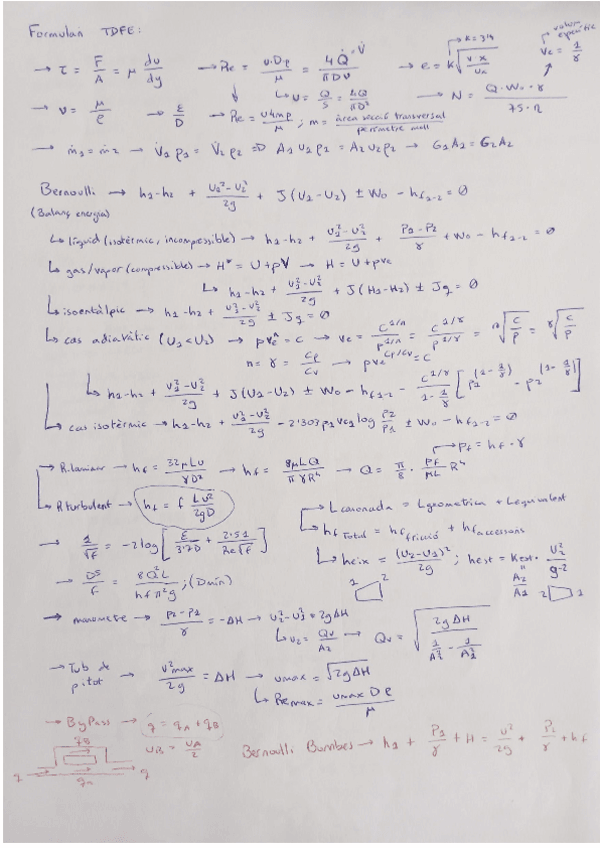 Formulari TDFE:
→ τ = F/A = μ du/dy → Re = u·Dρ/μ = 4Q̇/πDν → e = K√(νx/u∞) K=3'4 volum específic ve = 1/γ
→ ν = μ/ρ → ε/D ↳ u = Q/S = 4Q/πD² → N = Q·W₀·γ/75·η
→ Re = u4mρ/μ ; m = àrea secció transversal/perímetre mull
→ ṁ₁ = ṁ₂ → V̇₁ρ₁ = V̇₂ρ₂ ⇒ A₁u₁ρ₁ = A₂u₂ρ₂ → G₁A₁ = G₂A₂
Bernoulli → h₁-h₂ + (u₁²-u₂²)/2g + J(U₁-U₂) ± W₀ - hf₁₋₂ = 0
(Balanç energia)
↳ líquid (isotèrmic, incompressible) → h₁-h₂ + (u₁²-u₂²)/2g + (P₁-P₂)/γ + W₀ - hf₁₋₂ = 0
↳ gas/vapor (compressible) → H* = U+pV → H = U+pve
↳ h₁-h₂ + (u₁²-u₂²)/2g + J(H₁-H₂) ± Jq = 0
↳ isoentàlpic → h₁-h₂ + (u₁²-u₂²)/2g ± Jq = 0
↳ cas adiabàtic (U₁<U₂) → pveⁿ = c → ve = c^(1/n)/p^(1/n) = c^(1/γ)/p^(1/γ) = ⁿ√(c/p) = ^γ√(c/p)
n = γ = Cp/Cv → pve^(Cp/Cv) = c
↳ h₁-h₂ + (u₁²-u₂²)/2g + J(U₁-U₂) ± W₀ - hf₁₋₂ - c^(1/γ)/(1-1/γ) [p₁^(1-1/γ) - p₂^(1-1/γ)]
↳ cas isotèrmic → h₁-h₂ + (u₁²-u₂²)/2g - 2'303p₁ve₁log p₂/p₁ ± W₀ - hf₁₋₂ = 0
→ Pf = hf·γ
↳ R.laminar → hf = 32μLu/γD² → hf = 8μLQ/πγR⁴ → Q = π/8 · Pf/μL R⁴
↳ R turbulent → hf = f Lu²/2gD
→ L canonada = L geometrica + L equivalent
→ 1/√f = -2log[ε/3'7D + 2'51/Re√f] ↳ hf Total = hf fricció + hf accessoris
→ D⁵/f = 8Q²L/hfπ²g ; (Dmín) ↳ heix = (u₂-u₁)²/2g ; hest = Kest · u₂²/g·2
1 2 A₂/A₁ 2 1
→ manometre → (p₂-p₁)/γ = -ΔH → u₂²-u₁² = 2gΔH
↳ u₂ = Qv/A₂ → Qv = √(2gΔH/(1/A₂² - 1/A₁²))
→ Tub de pitot → u²max/2g = ΔH → umax = √2gΔH
↳ Remax = umaxDρ/μ
→ ByPass → q̇ = qA + qB
uB = uA/2
Bernoulli Bombes → h₁ + P₁/γ + H = u²/2g + P₂/γ + hf
qB
q qA q